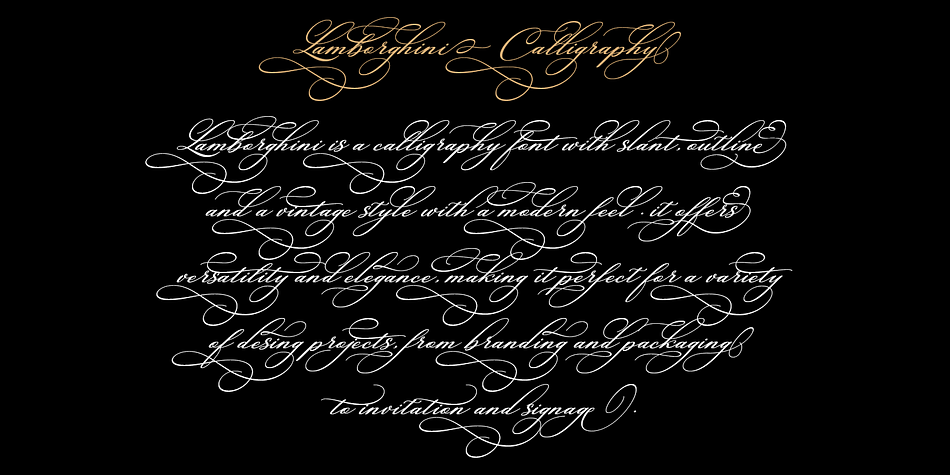 Lamborghini - Calligraphy
Lamborghini is a calligraphy font with slant, outline
and a vintage style with a modern feel . it offers
versatitity and elegance, making it perfect for a variety
of desing projects, from branding and packaging
to invitation and signage .